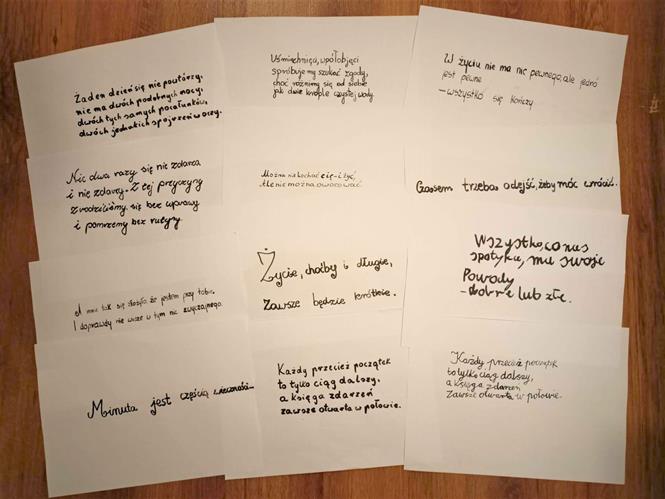 Żaden dzień się nie powtórzy,
nie ma dwóch podobnych nocy,
dwóch tych samych pocałunków,
dwóch jednakich spojrzeń w oczy.
Uśmiechnięci, wpółobjęci
spróbujemy szukać zgody,
choć różnimy się od siebie
jak dwie krople czystej wody.
W życiu nie ma nic pewnego, ale jedno
jest pewne
– wszystko się kończy.
Nic dwa razy się nie zdarza
i nie zdarzy. Z tej przyczyny
zrodziliśmy się bez wprawy
i pomrzemy bez rutyny.
Można nie kochać cię – i żyć,
ale nie można owocować.
Czasem trzeba odejść, żeby móc wrócić.
A mnie tak się złożyło że jestem przy tobie.
I doprawdy nie widzę w tym nic zwyczajnego.
Życie, choćby i długie,
zawsze będzie krótkie.
Wszystko, co nas
spotyka, ma swoje
Powody
– dobre lub złe.
Minuta jest częścią wieczności...
Każdy przecież początek
to tylko ciąg dalszy,
a księga zdarzeń
zawsze otwarta w połowie.
Każdy przecież początek
to tylko ciąg dalszy,
a księga zdarzeń
Zawsze otwarta w połowie.